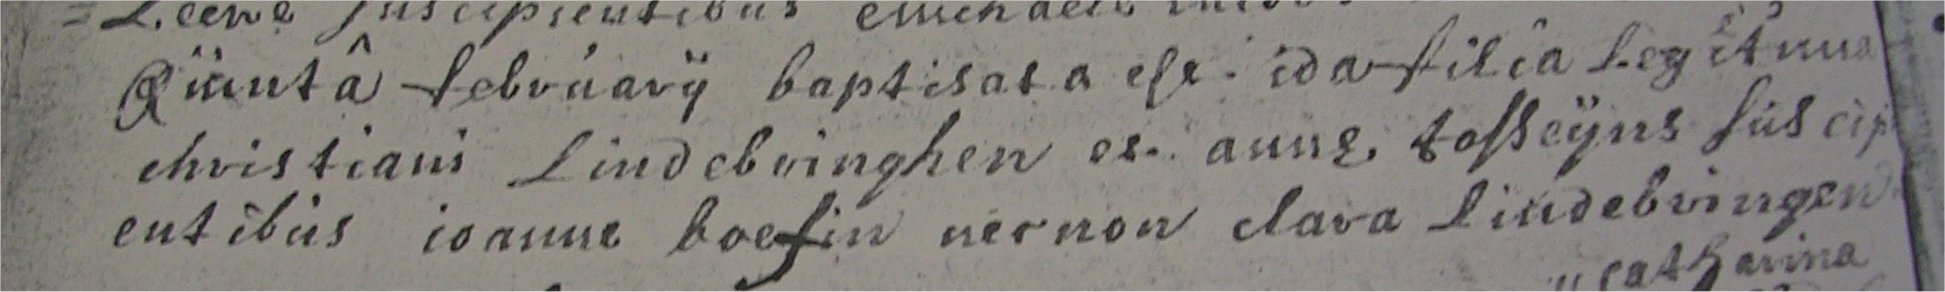 Leene suscipientibus
Quintâ februarÿ baptisata est ida filia legitima
christiani Lindebringhen et annę tosseÿns suscip
entibus ioanne boesin necnon clara lindebringen
catharina